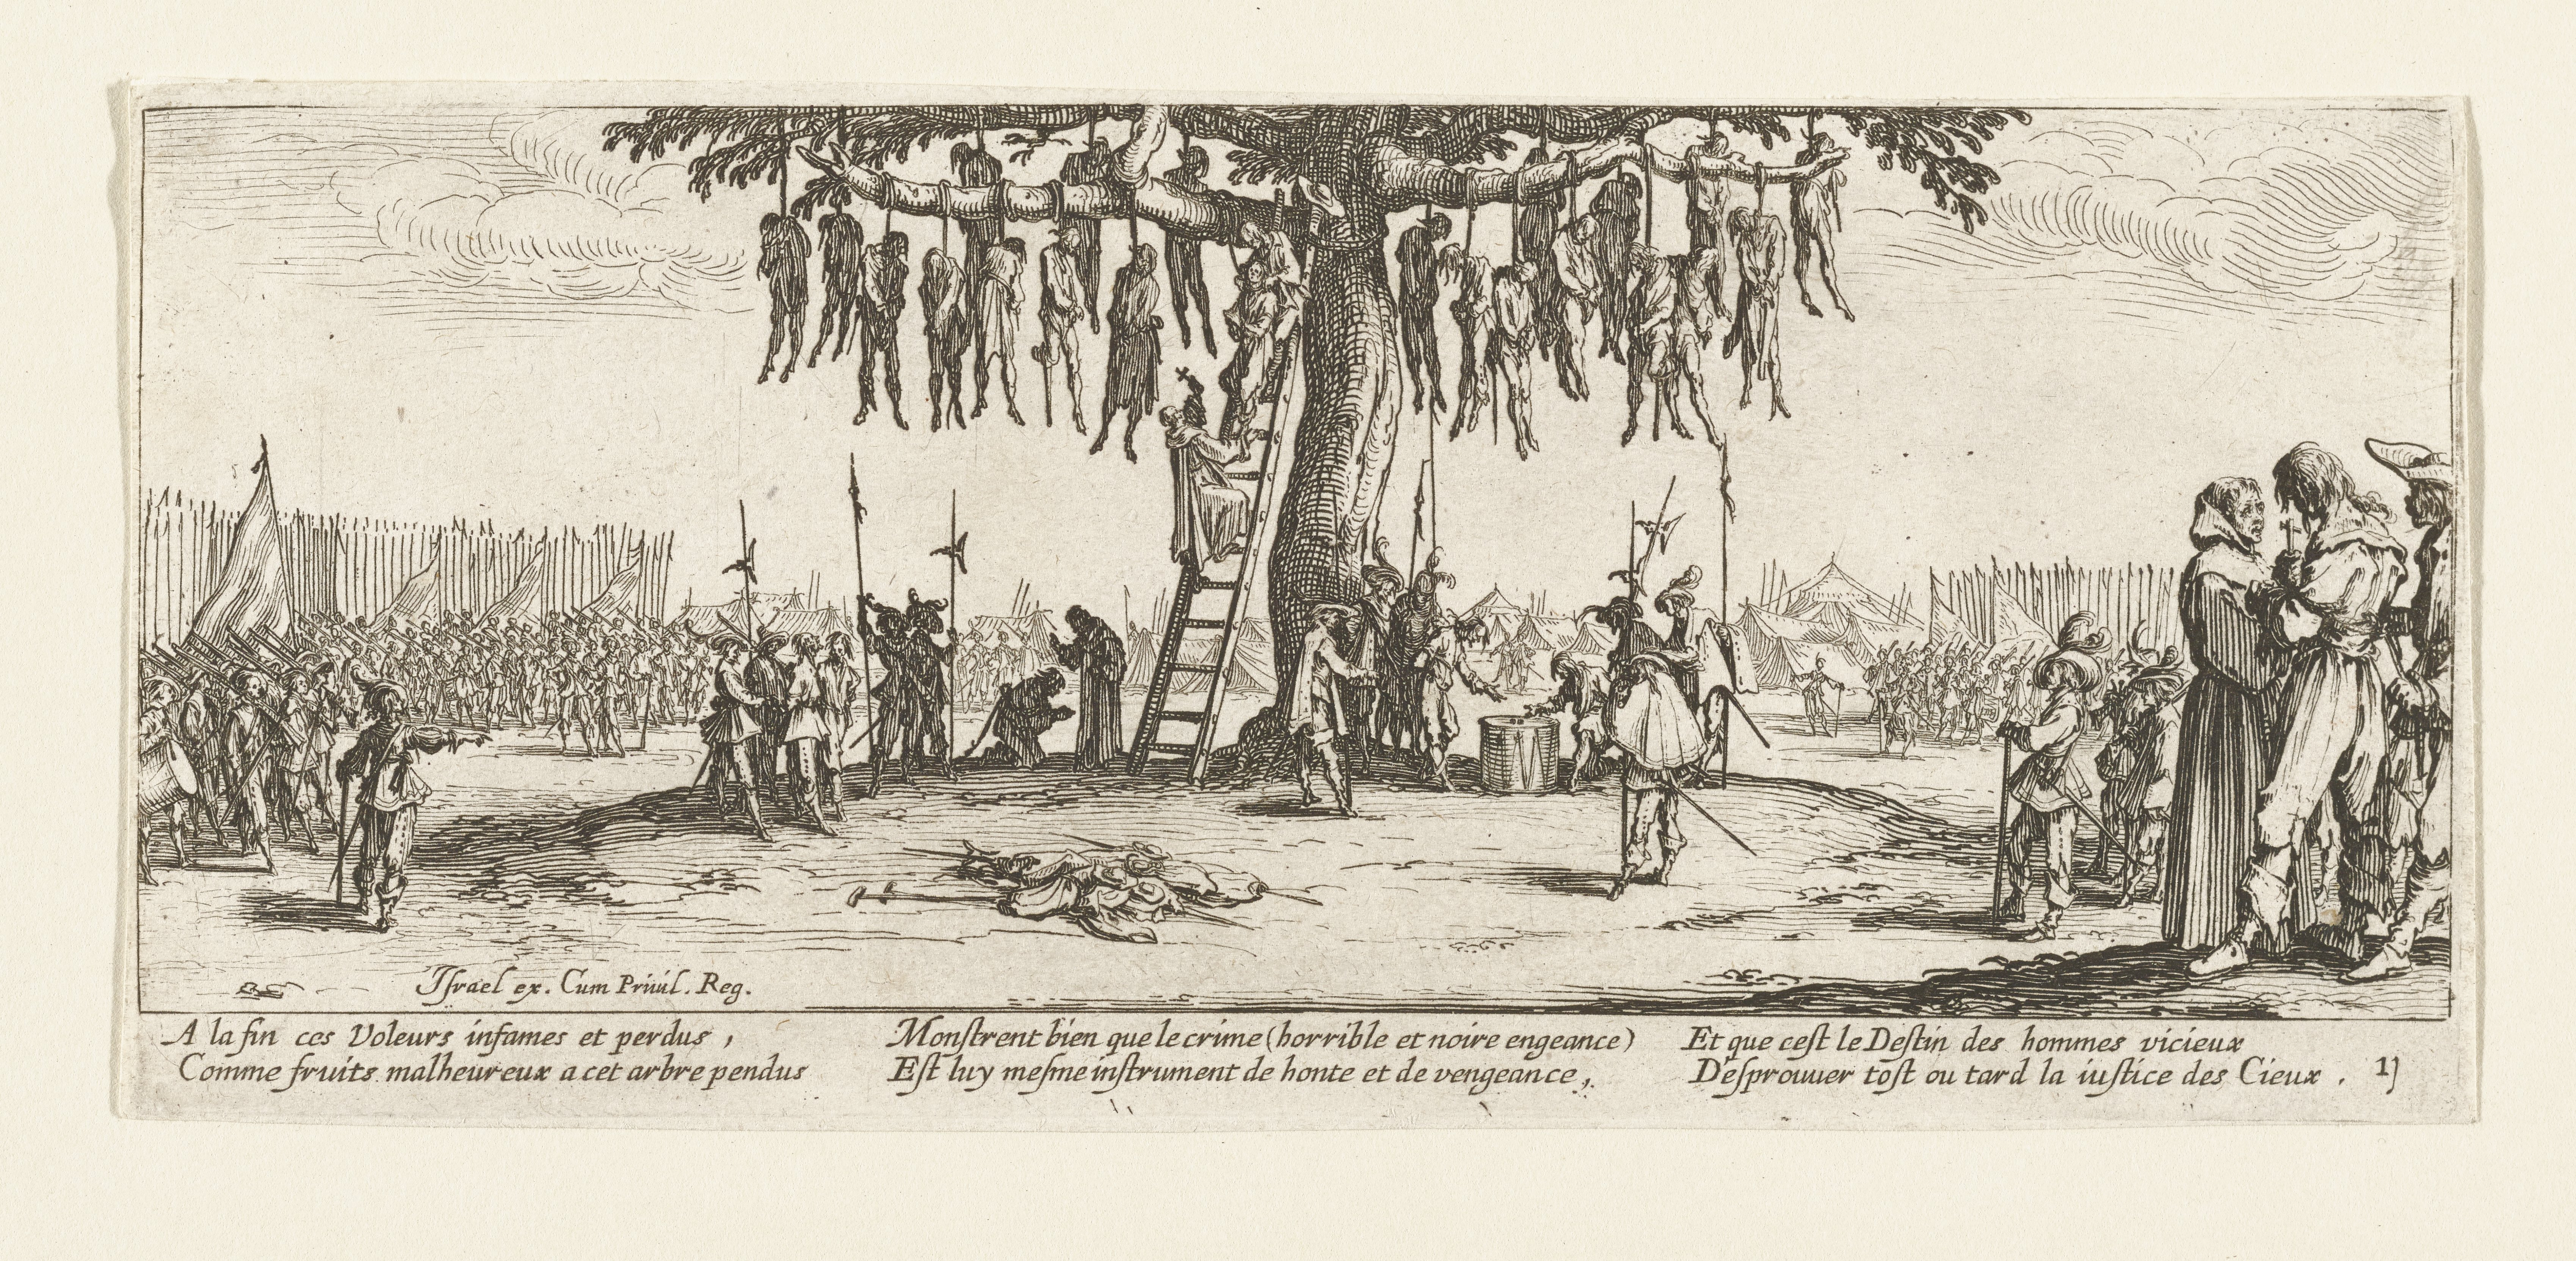 Iſrael ex. Cum Priuil. Reg.
A la fin ces Voleurs infames et perdus ,
Comme fruits malheureux a cet arbre pendus
Monſtrent bien que le crime (horrible et noire engeance)
Eſt luy meſme inſtrument de honte et de vengeance ,
Et que ceſt le Deſtin des hommes vicieux
Deſprouuer toſt ou tard la iuſtice des Cieux . 11